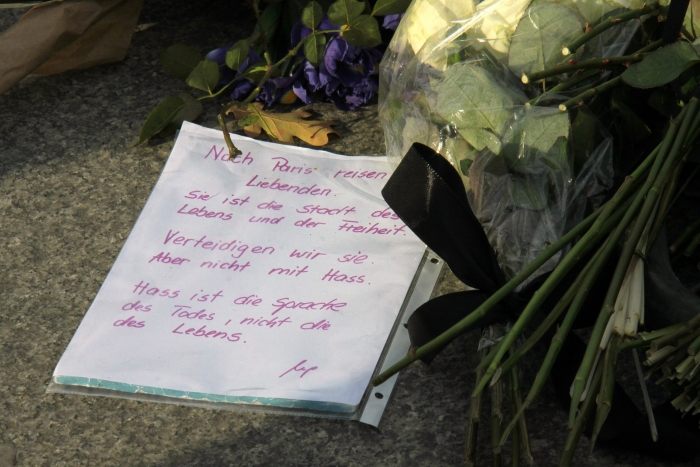 Nach Paris reisen
Liebenden.
Sie ist die Stadt des
Lebens und der Freiheit.
Verteidigen wir sie.
Aber nicht mit Hass.
Hass ist die Sprache
des Todes, nicht die
des Lebens.